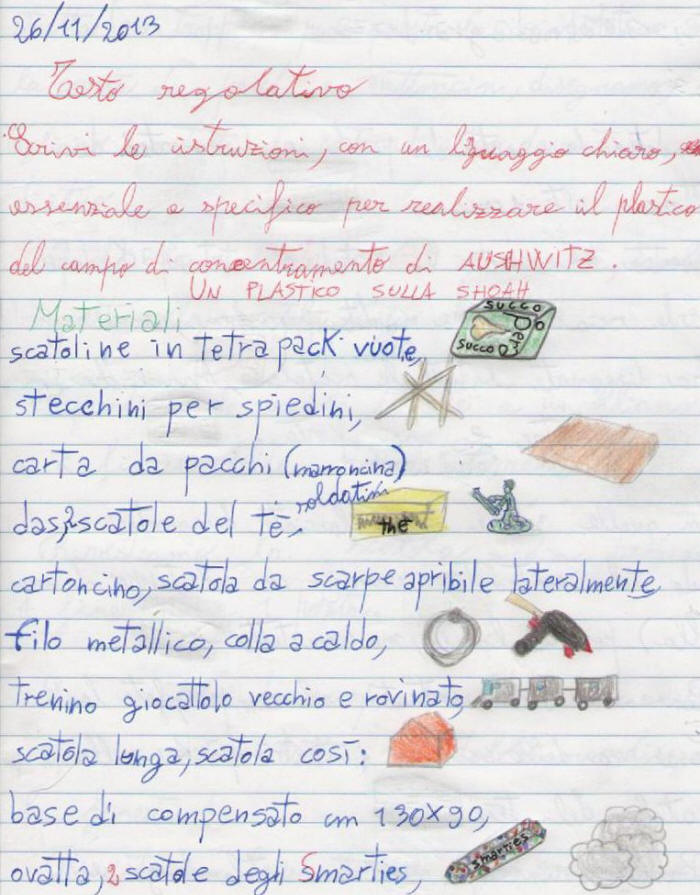 26/11/2013
Testo regolativo
Scrivi le istruzioni, con un liguaggio chiaro,
essenziale e specifico per realizzare il plastico
del campo di concentramento di AUSHWITZ.
UN PLASTICO SULLA SHOAH
Materiali
SUCCO
Pera
SUCCO DI
scatoline in tetrapack vuote,
stecchini per spiedini,
carta da pacchi (marroncina)
soldatini
das, 2 scatole del tè,
thè
cartoncino, scatola da scarpe apribile lateralmente,
filo metallico, colla a caldo,
trenino giocattolo vecchio e rovinato,
scatola lunga, scatola così:
base di compensato cm 130x90,
ovatta, 2 scatole degli Smarties,
smarties